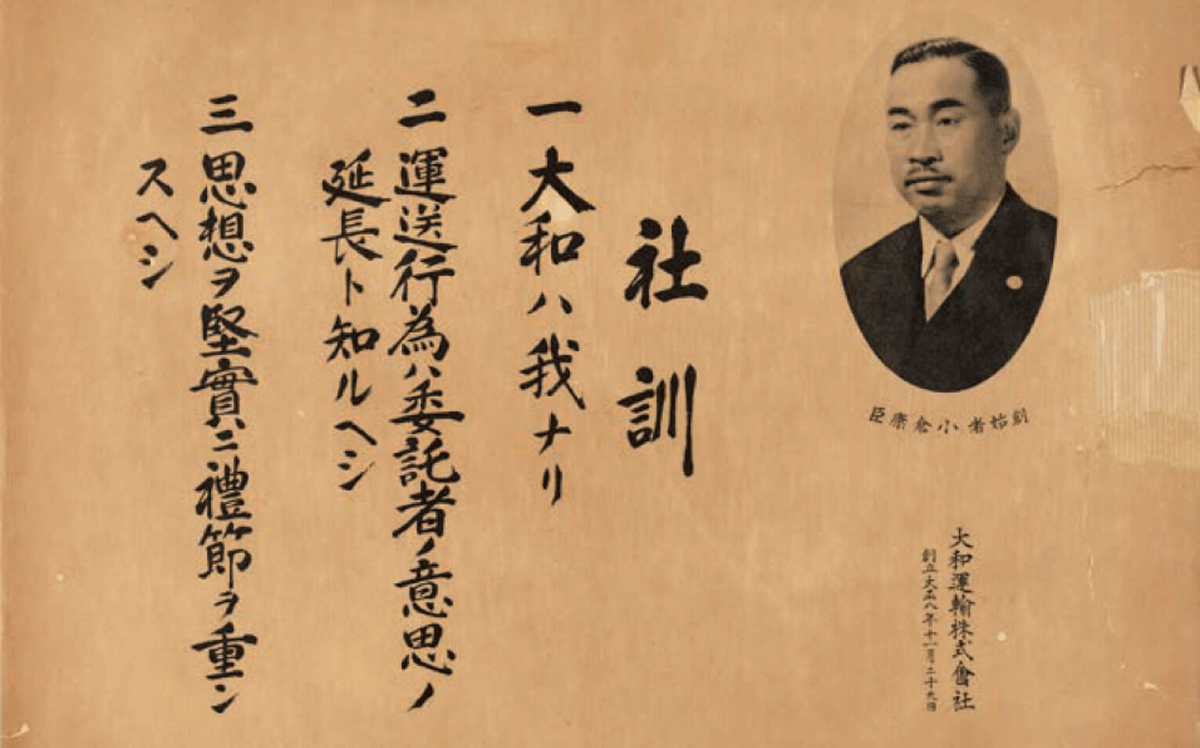 創始者 小倉康臣
大和運輸株式會社
創立大正八年十一月二十九日
社訓
一 大和ハ我ナリ
二 運送行為ハ委託者ノ意思ノ
延長ト知ルヘシ
三 思想ヲ堅實ニ禮節ヲ重ン
スヘシ